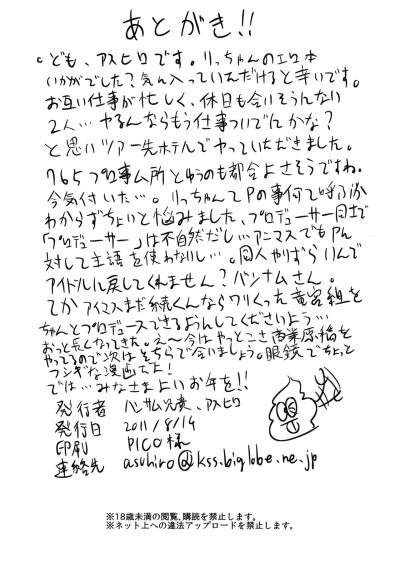 あとがき!!
。ども、アスヒロです。りっちゃんのエロ本
いかがでした?気に入っていただけると幸いです。
お互い仕事が忙しく、休日も会いそうんない
2人…ヤるんならもう仕事ついでにかな?
と思いツアー先ホテルでやっていただきました。
765プロ事ム所とゆうのも都合よさそうですね。
今気付いた…。りっちゃんてPの事何て呼ぶか
わからずちょいと悩みました、プロデューサー同士で
「プロデューサー」は不自然だし…アニマスでもPに
対して主語を使わないし…。同人やりずらいんで
アイドルに戻してくれません?バンナムさん。
てかアイマスまだ続くんならワりくった竜宮組を
ちゃんとプロデュースできるおんしてくださいよう…
おっと長くなってきた。え〜今はやっとこさ商業原稿を
やってるので次はそちらで会いましょう。眼鏡でちょっと
フシギな漫画でよ!
では…みなさまよいお年を!!
発行者 ハンサム兄貴、アスヒロ
発行日 2011/8/14
印刷 PICO様
連絡先 asuhiro@kss.biglobe.ne.jp
※18歳未満の閲覧、購読を禁止します。
※ネット上への違法アップロードを禁止します。